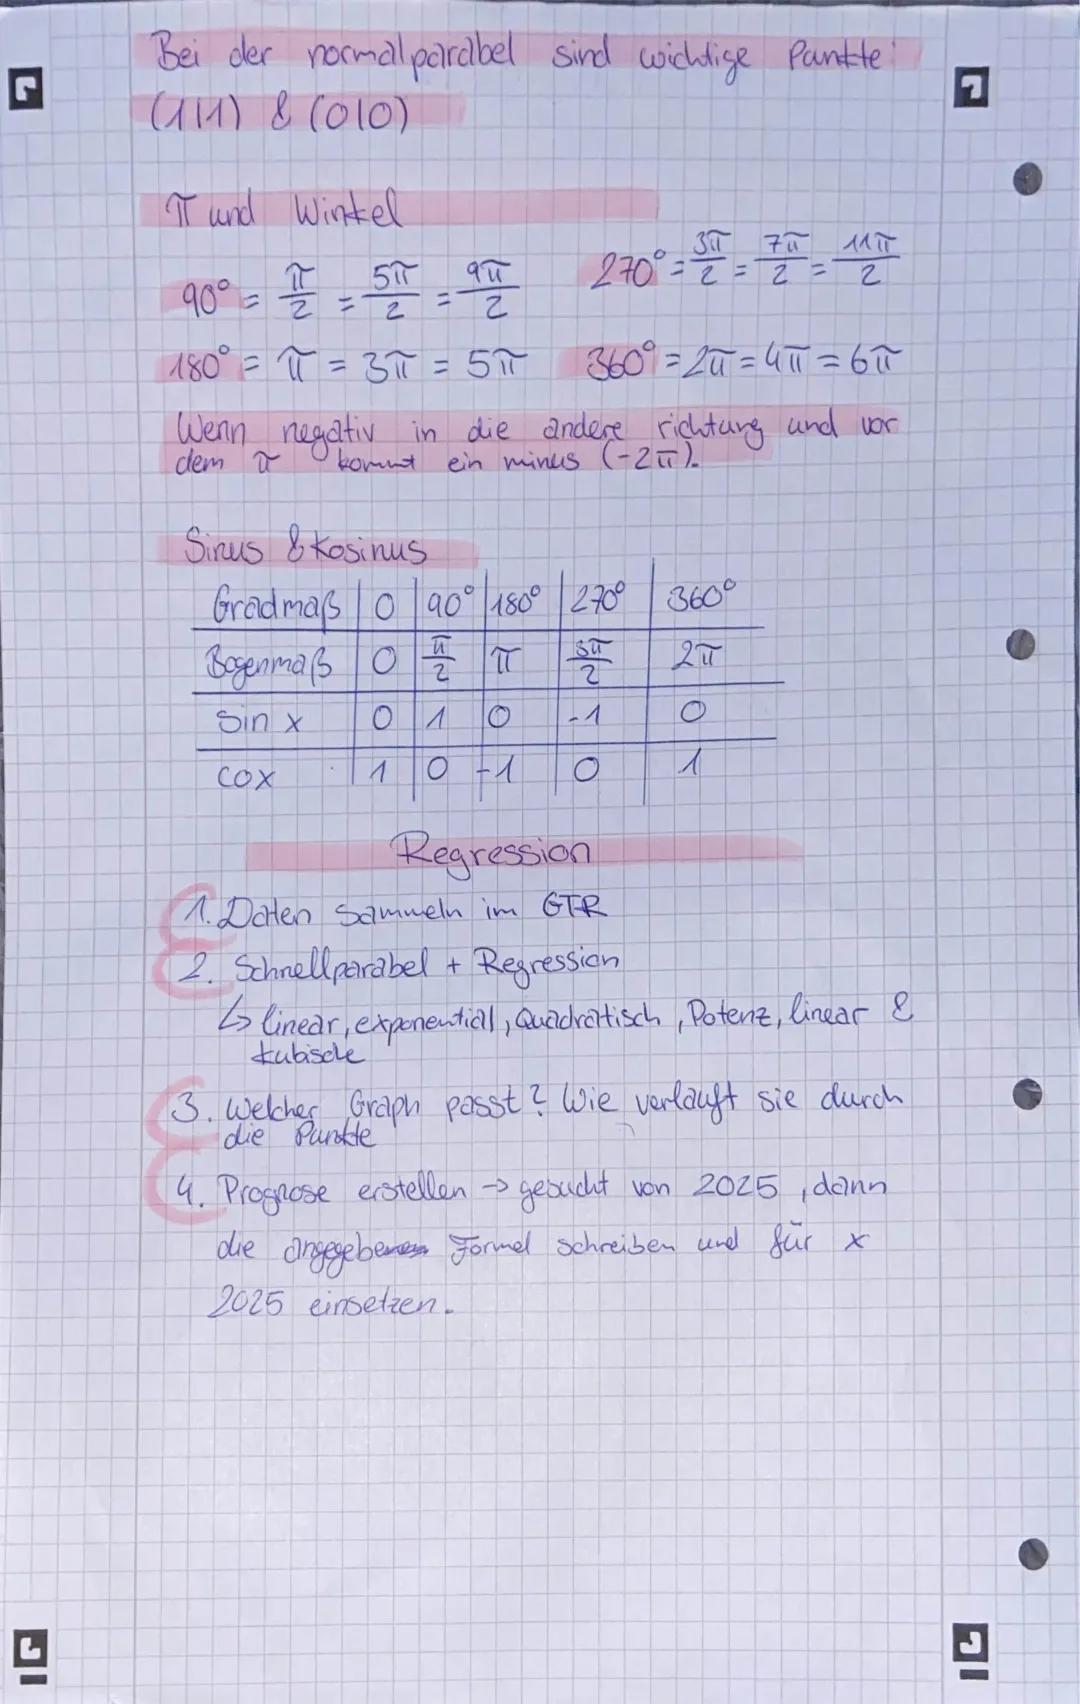 Bei der normalparabel sind wichtige Punkte:
(1|1) & (0|0)
π und Winkel
90° = π/2 = 5π/2 = 9π/2
270° = 3π/2 = 7π/2 = 11π/2
180° = π = 3π = 5π
360° = 2π = 4π = 6π
Wenn negativ in die andere richtung und vor
dem π kommt ein minus (-2π).
Sinus & Kosinus
Gradmaß | 0 | 90° | 180° | 270° | 360°
Bogenmaß | 0 | π/2 | π | 3π/2 | 2π
Sin x | 0 | 1 | 0 | -1 | 0
cox | 1 | 0 | -1 | 0 | 1
Regression
1. Daten Sammeln im GTR
2. Schnellparabel + Regression
↳ linear, exponential, Quadratisch, Potenz, linear &
kubische
3. Welcher Graph passt? Wie verläuft sie durch
die Punkte
4. Prognose erstellen → gesucht von 2025, dann
die angegebenen Formel schreiben und für x
2025 einsetzen.